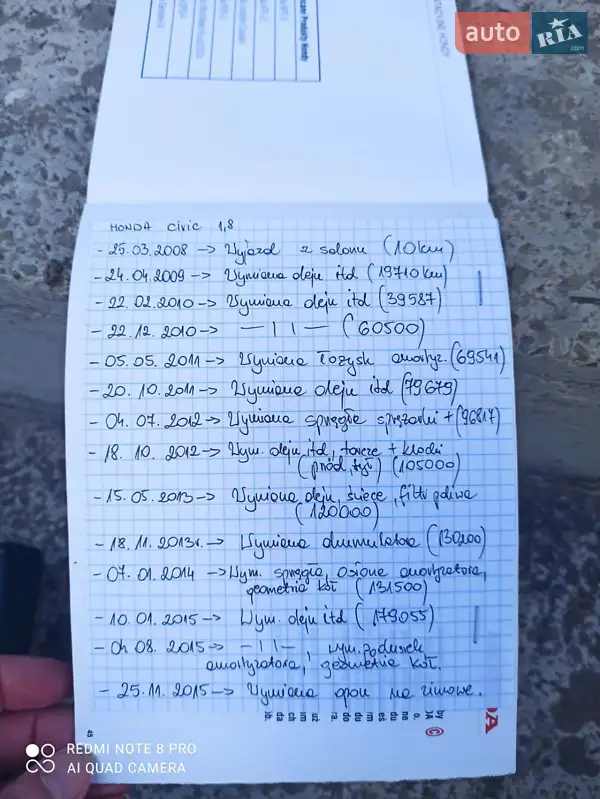 auto RIA .com
HONDA civic 1,8
- 25.03.2008 -> Wyjazd z salonu (10km)
- 24.04.2009 -> Wymiana oleju itd (19710 km)
- 22.02.2010 -> Wymiana oleju itd (39587)
- 22.12.2010 -> —||— (60500)
- 05.05.2011 -> Wymiana łożysk amortyz. (69541)
- 20.10.2011 -> Wymiana oleju itd (79679)
- 04.07.2012 -> Wymiana sprzęgła + (96817)
- 18.10.2012 -> Wym. oleju itd, tarcze + klocki
(przód, tył) (105000)
- 15.05.2013 -> Wymiana oleju, świece, filtr paliwa
(120000)
- 18.11.2013r. -> Wymiana akumulatora (130200)
- 07.01.2014 -> Wym. sprzęgła, osłona amortyzatora,
geometria kół (131500)
- 10.01.2015 -> Wym. oleju itd (179055)
- 04 08.2015 -> —||—, wym. poduszek
amortyzatora, geometria kół.
- 25.11.2015 -> Wymiana opon na zimowe.
45
REDMI NOTE 8 PRO
AI QUAD CAMERA